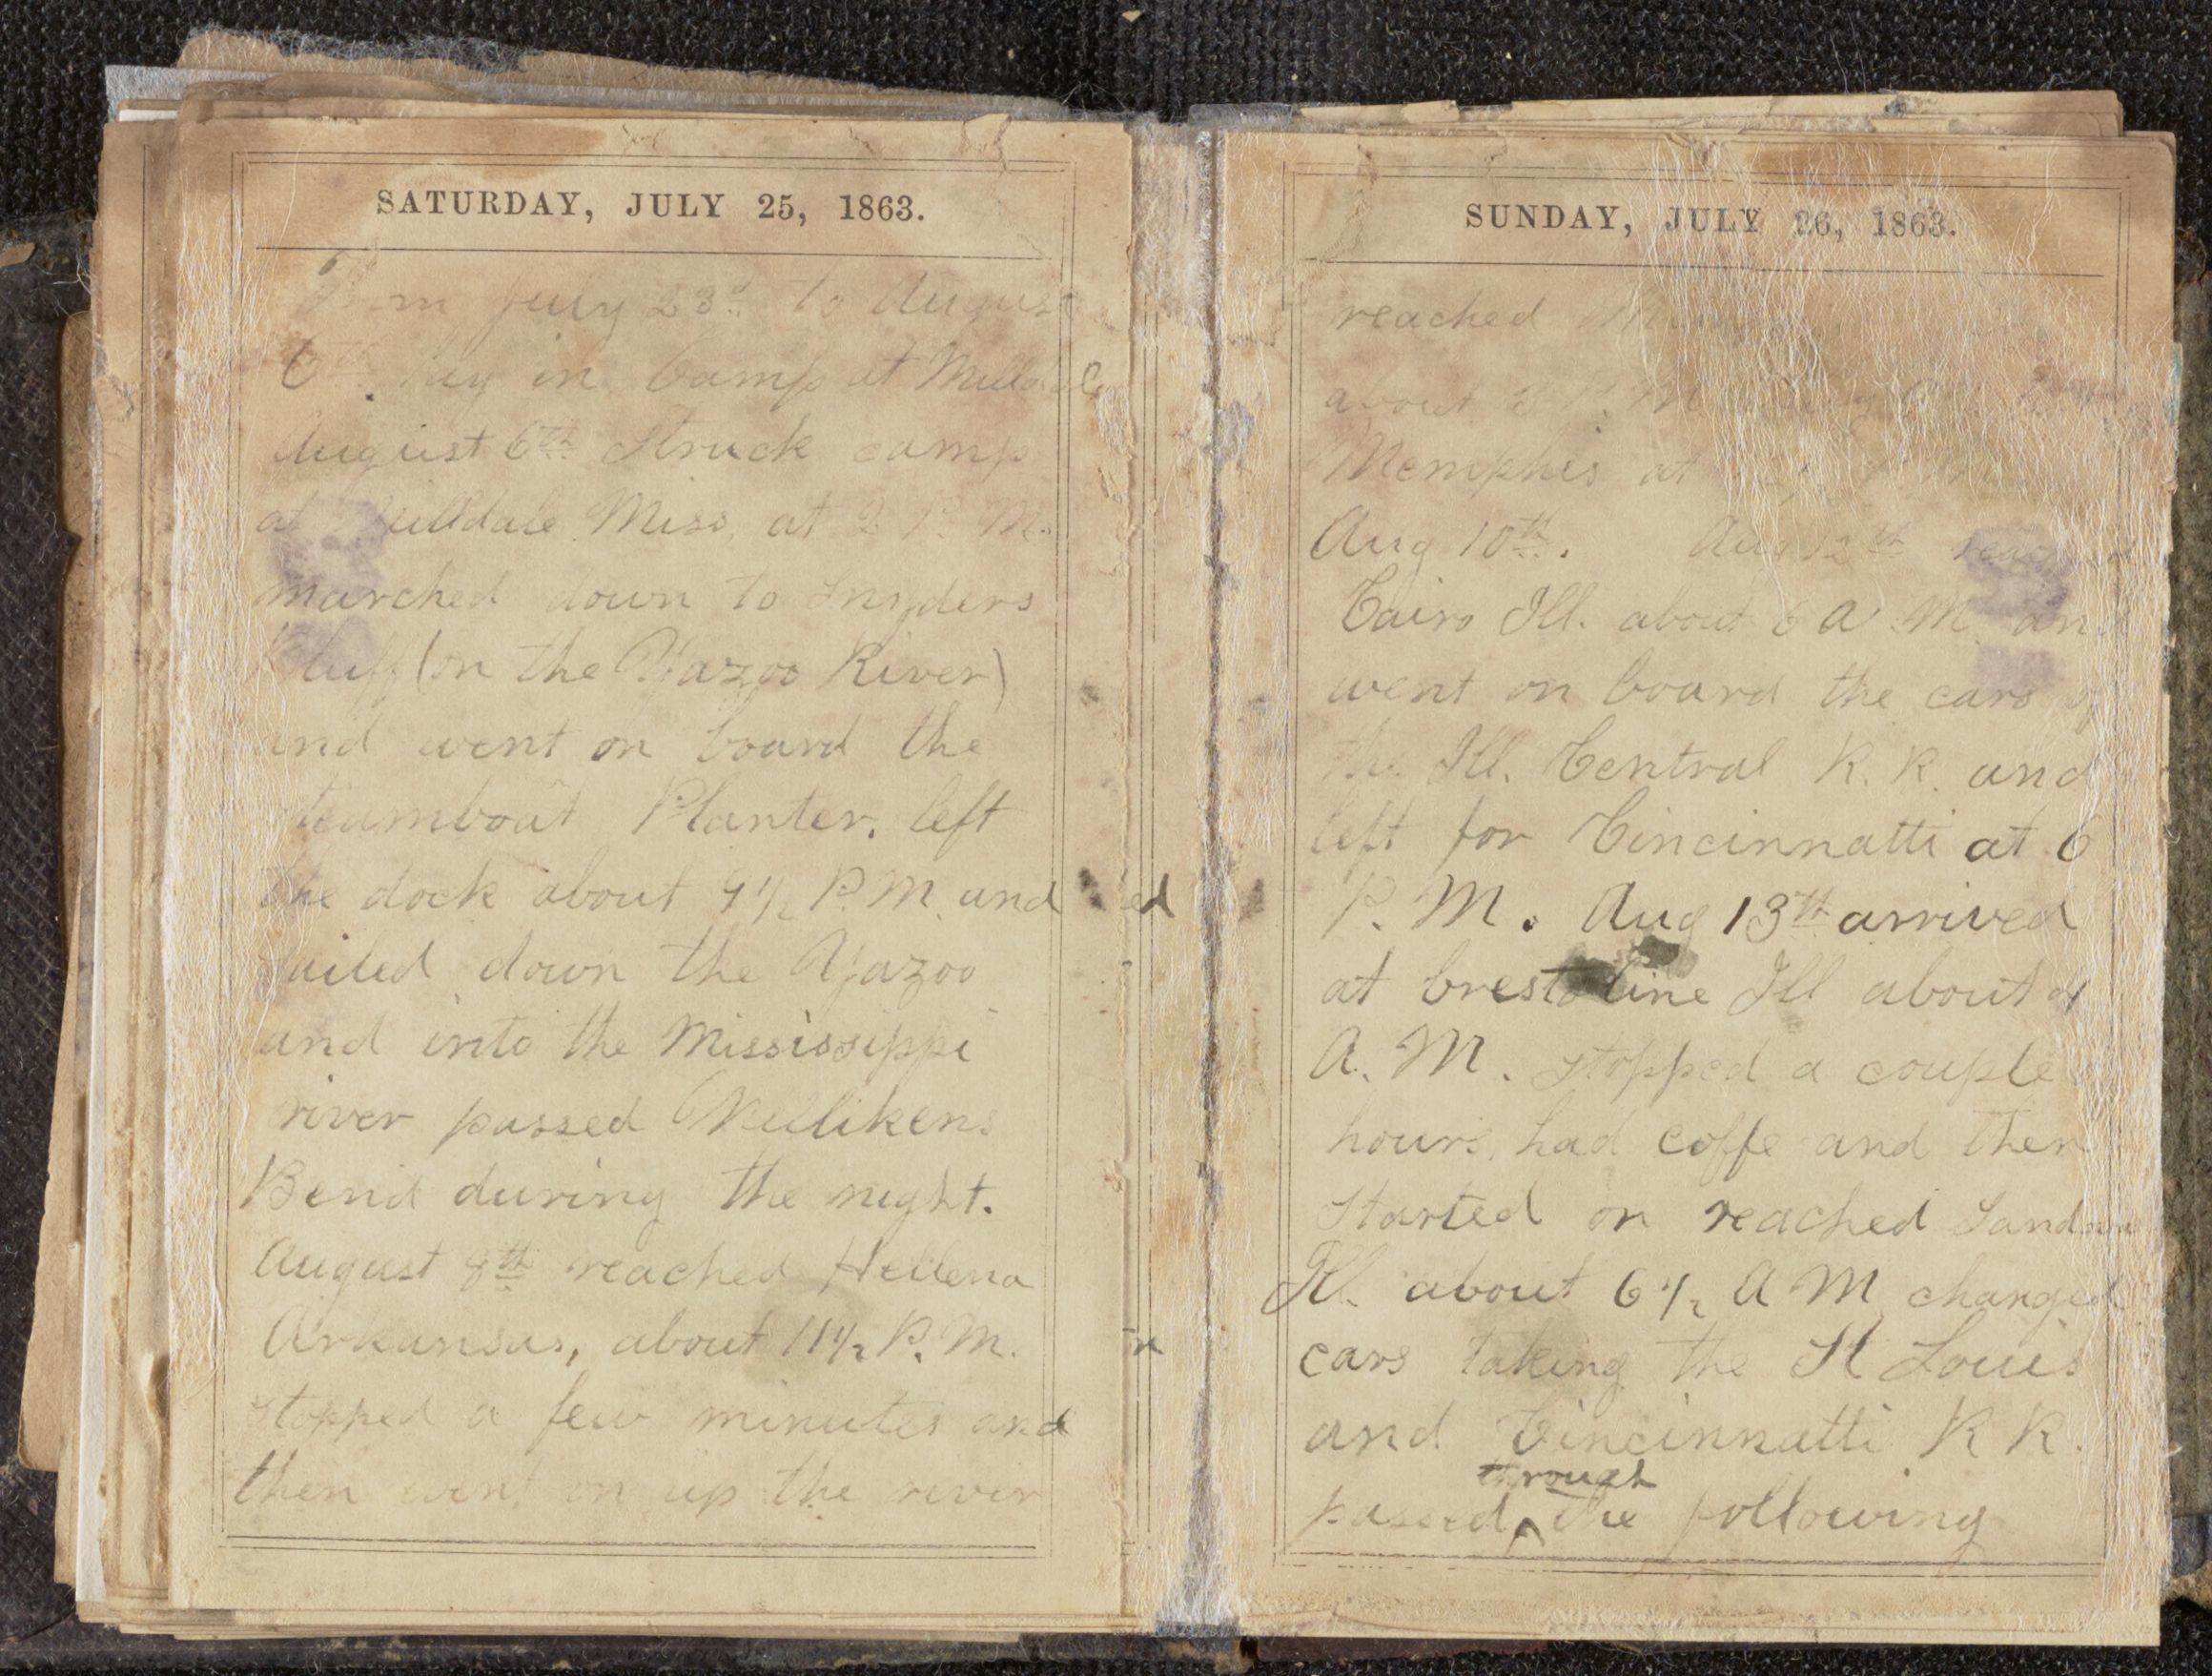 SATURDAY, JULY 25, 1863.
From July 23d to August
6th lay in Camp at Milldale
August 6th Struck camp
at Milldale Miss, at 2 P. M.
marched down to Snyders
Bluff (on the Yazoo River)
and went on board the
steamboat Planter. left
the dock about 9 1/2 P. M. and
sailed down the Yazoo
and into the Mississippi
river passed Millikens
Bend during the night.
August 8th reached Hellena
Arkansas, about 11 1/2 P. M.
stopped a few minutes and
then went on up the river
ed
n
SUNDAY, JULY 26, 1863.
reached
about P. M.
Memphis at
Aug 10th. Aug 12th reached
Cairo Ill. about 6 A. M. and
went on board the cars of
the Ill. Central R. R. and
left for Cincinnatti at 6
P. M. Aug 13th arrived
at Crestoline Ill about 4
A. M. stopped a couple
hours, had coffe and then
started on reached
Ill. about 6 1/2 A M changed
cars taking the St Louis
and Cincinnatti R R.
through
passed ^ the following